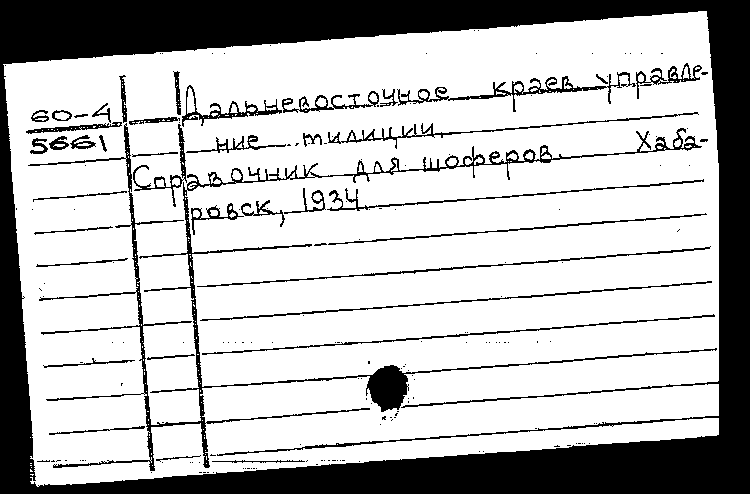 60-4
5661
Дальневосточное краев управле-
ние милиции.
Справочник для шоферов. Хаба-
ровск, 1934.